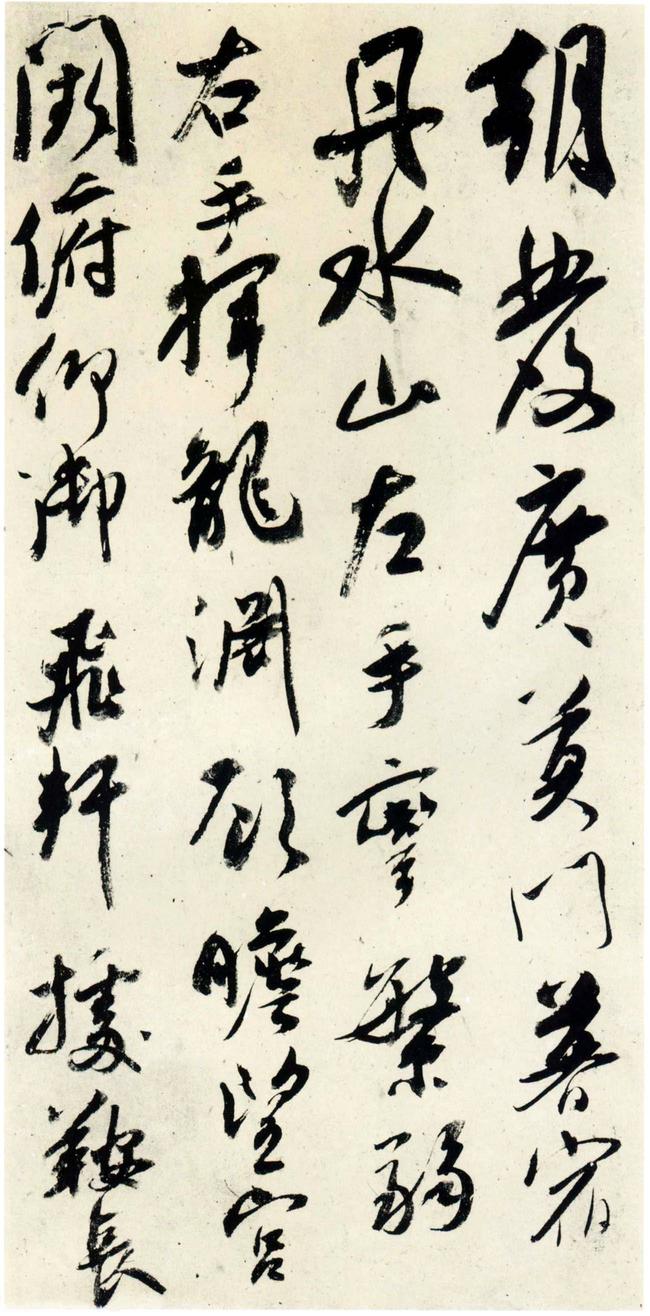 朝發廣莫門暮宿
丹水山左手彎繁弱
右手揮龍淵顧瞻望宮
闕俯仰御飛軒據鞍長